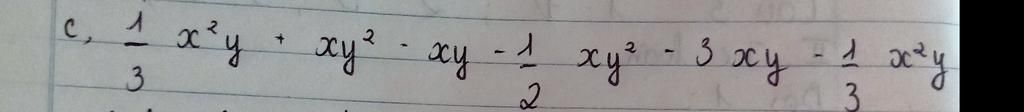 c, 1/3 x²y + xy² - xy - 1/2 xy² - 3 xy - 1/3 x²y